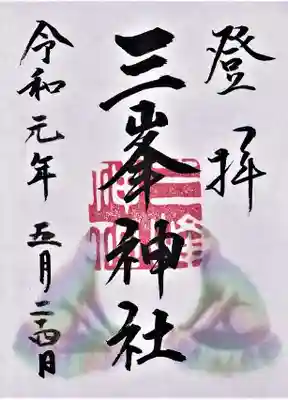 登拝
三峯神社
令和元年五月二十四日